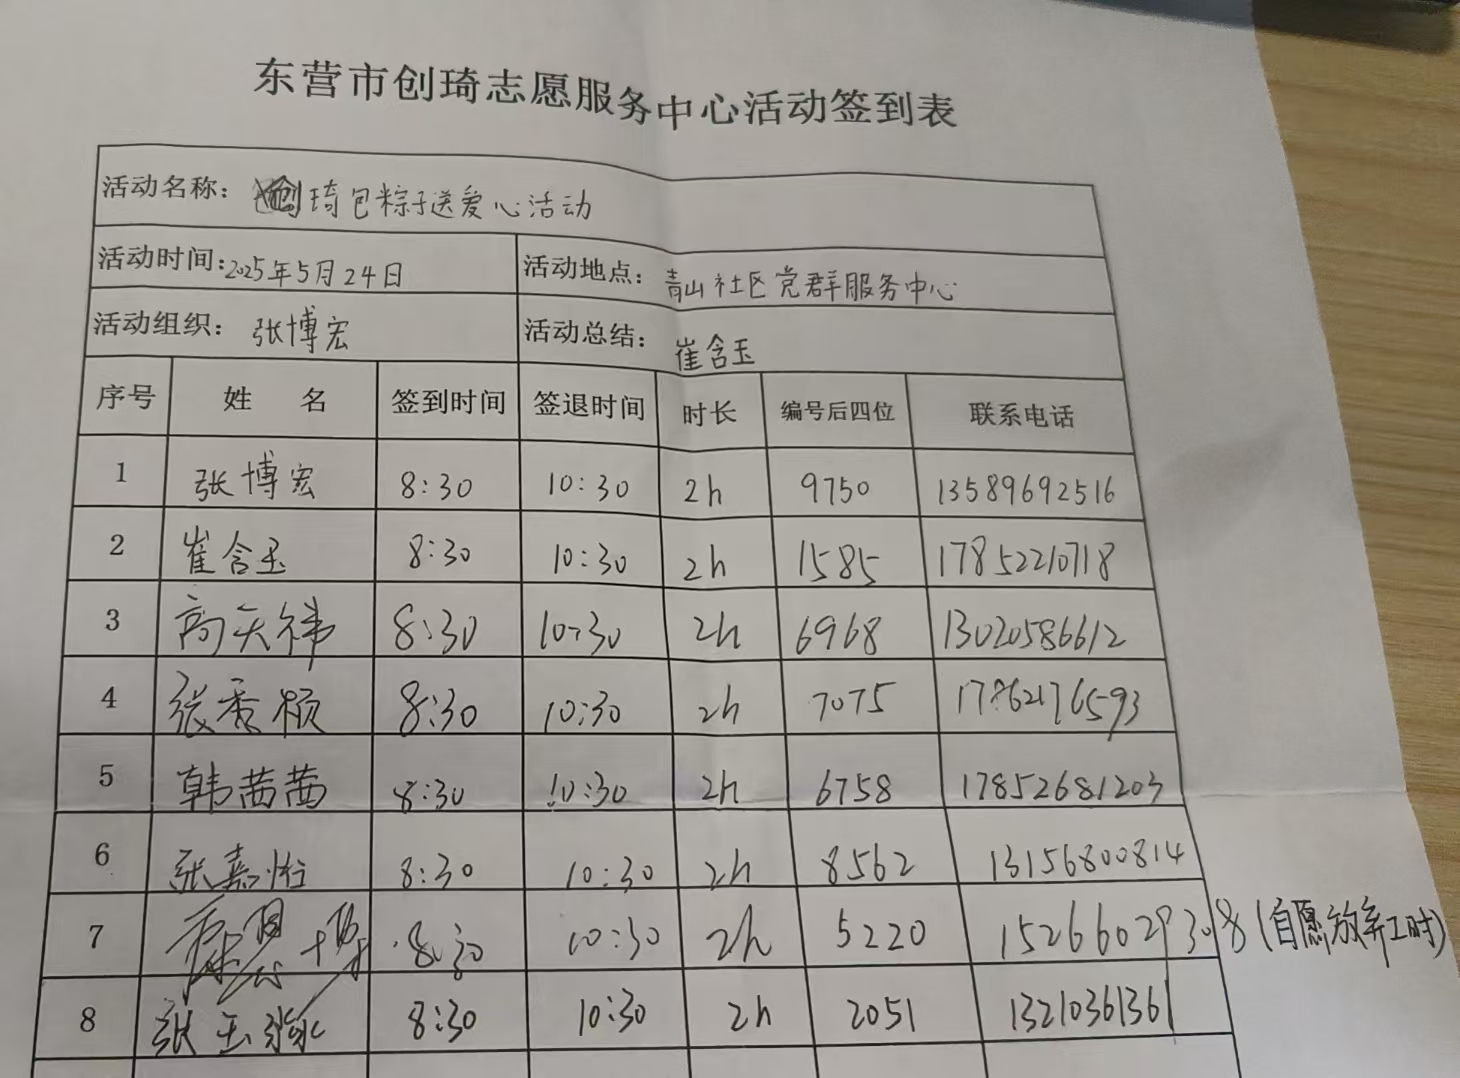 东营市创琦志愿服务中心活动签到表
活动名称：创琦包粽子送爱心活动
活动时间：2025年5月24日 活动地点：青山社区党群服务中心
活动组织：张博宏 活动总结：崔含玉
序号 姓 名 签到时间 签退时间 时长 编号后四位 联系电话
1 张博宏 8:30 10:30 2h 9750 13589692516
2 崔含玉 8:30 10:30 2h 1585 17852210718
3 高天祎 8:30 10:30 2h 6968 13020586612
4 张秀颀 8:30 10:30 2h 7075 17862176593
5 韩茜茜 8:30 10:30 2h 6758 17852681203
6 张嘉怡 8:30 10:30 2h 8562 13156800814
7 8:30 10:30 2h 5220 15266029308（自愿放弃工时）
8 张玉 8:30 10:30 2h 2051 13210361361